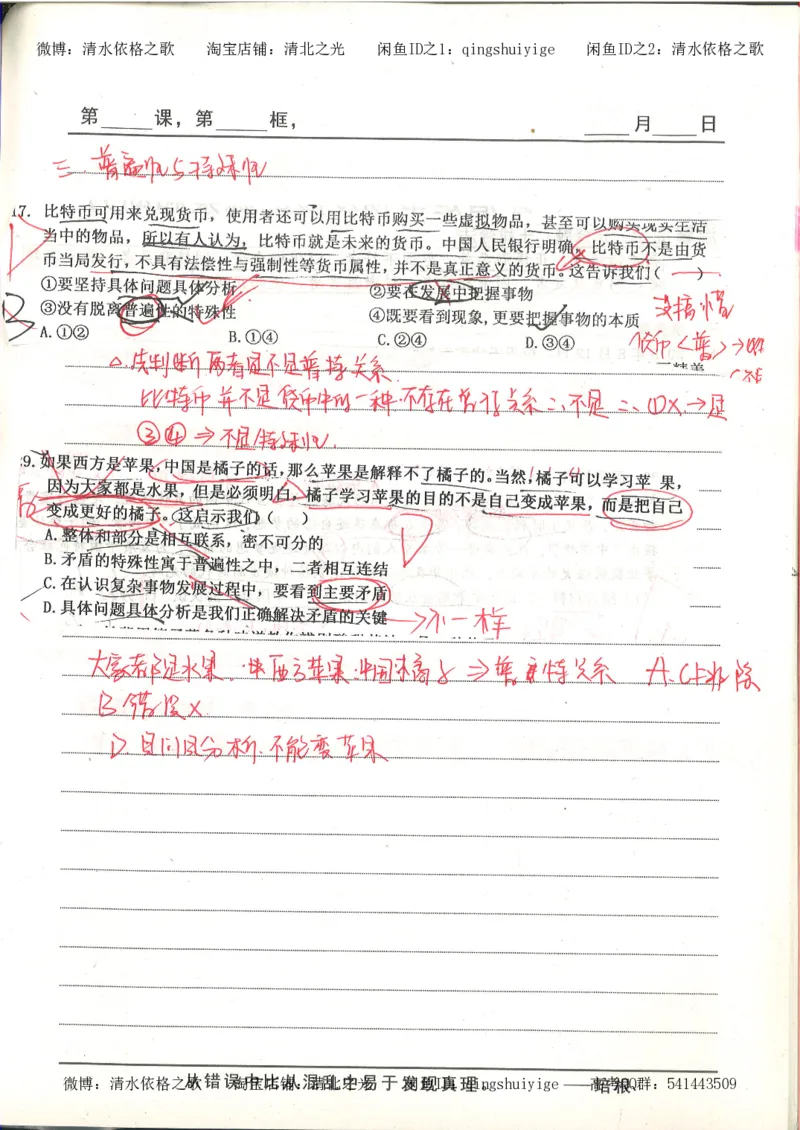 微博：清水依格之歌 淘宝店铺：清北之光 闲鱼ID之1：qingshuiyige 闲鱼ID之2：清水依格之歌
第 课，第 框， 月 日
三 普遍性与特殊性
17. 比特币可用来兑现货币，使用者还可以用比特币购买一些虚拟物品，甚至可以购买现实生活
当中的物品，所以有人认为，比特币就是未来的货币。中国人民银行明确，比特币不是由货
币当局发行，不具有法偿性与强制性等货币属性，并不是真正意义的货币。这告诉我们（ ）
①要坚持具体问题具体分析 ②要在发展中把握事物
③没有脱离普遍性的特殊性 ④既要看到现象,更要把握事物的本质
没搞懂
A.①② B.①④ C.②④ D.③④
货币<普>
△先判断两者是不是普特关系
比特币并不是货币中的一种 不存在普特关系
③④⇒不是特殊性.
9. 如果西方是苹果,中国是橘子的话,那么苹果是解释不了橘子的。当然,橘子可以学习苹 果，
因为大家都是水果，但是必须明白，橘子学习苹果的目的不是自己变成苹果，而是把自己
变成更好的橘子。这启示我们（ ）
A.整体和部分是相互联系，密不可分的
B.矛盾的特殊性寓于普遍性之中，二者相互连结
C.在认识复杂事物发展过程中，要看到主要矛盾
D.具体问题具体分析是我们正确解决矛盾的关键
→不一样
大家都是水果 西方苹果 中国橘子⇒普特关系 A.C排除
B错误×
D.具问具分析.不能变苹果
从错误中比从混乱中易于发现真理. ——培根
微博：清水依格之歌 淘宝店铺：清北之光 qingshuiyige 高考QQ群：541443509